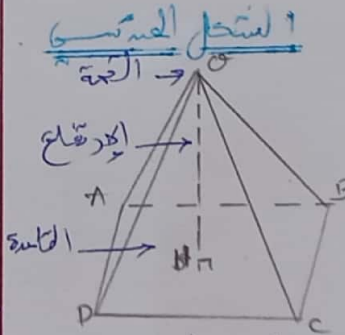 الشكل الهندسي
القمة → O
الارتفاع
A B
القاعدة
H
D C